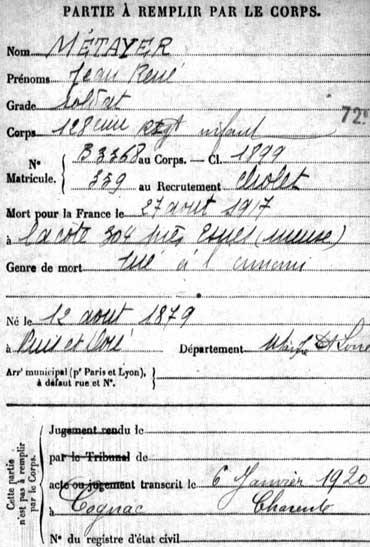 PARTIE À REMPLIR PAR LE CORPS.
Nom MÉTAYER
Prénoms Jean René
Grade Soldat
72e
Corps 128eme Regt infant
N° Matricule. { B3368 au Corps. — Cl. 1899
359 au Recrutement Cholet
Mort pour la France le 27 août 1917
à la cote 304 près Esnes (meuse)
Genre de mort tué à l'ennemi
Né le 12 août 1879
à Puis et Doré Département Maine & Loire
Arrt municipal (pr Paris et Lyon), à défaut rue et N°. }
Cette partie n'est pas à remplir par le Corps. {
Jugement rendu le
par le Tribunal de
acte ou jugement transcrit le 6 Janvier 1920
à Cognac Charente
N° du registre d'état civil